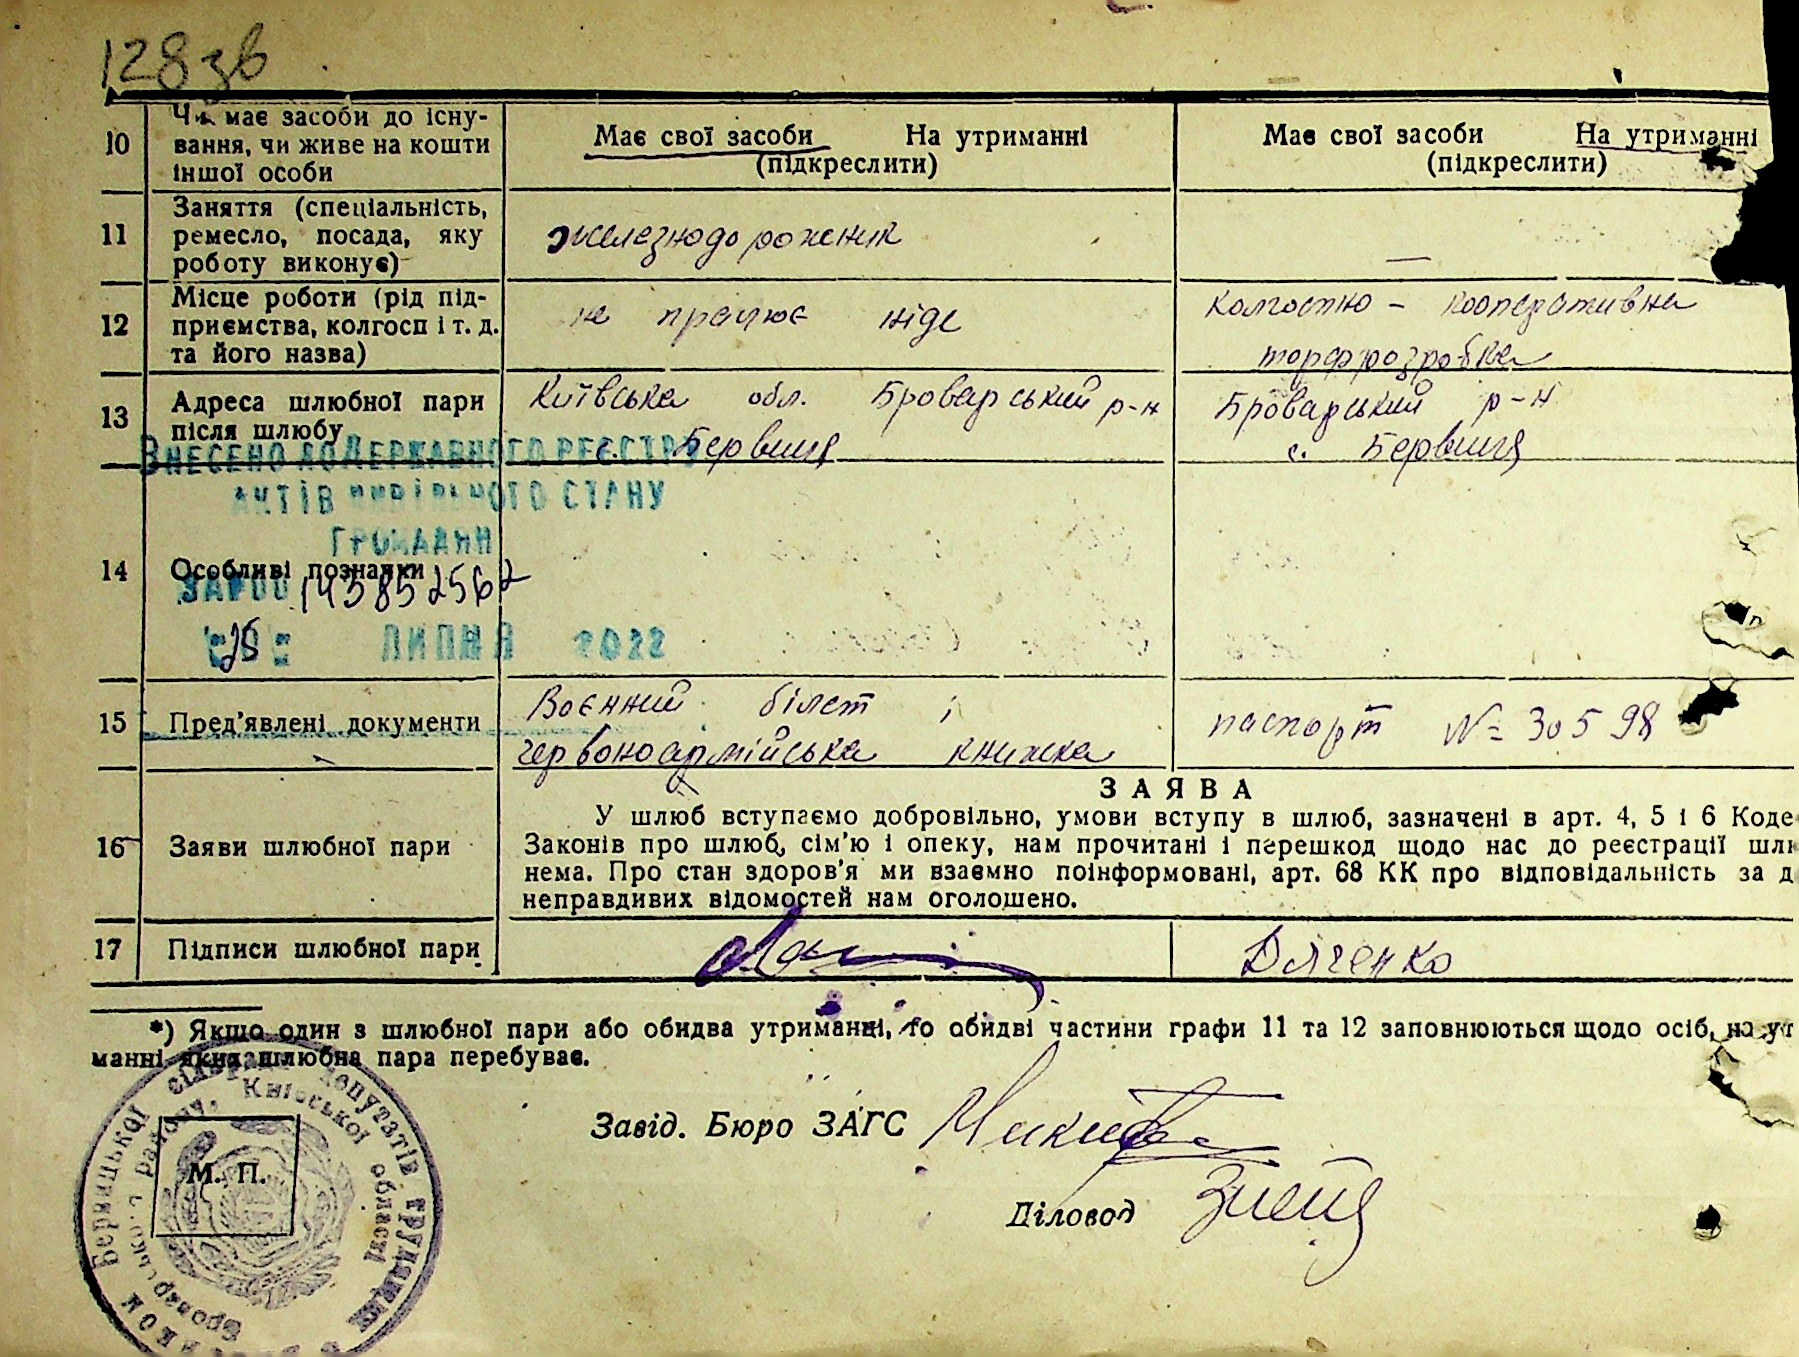 128 зв
10
Чи має засоби до існу-
вання, чи живе на кошти
іншої особи
Має свої засоби На утриманні
(підкреслити)
Має свої засоби На утриманні
(підкреслити)
11
Заняття (спеціальність,
ремесло, посада, яку
роботу виконує)
железнодорожник
—
12
Місце роботи (рід під-
приємства, колгосп і т. д.
та його назва)
не працює ніде
Колгоспно - кооперативна
торфрозробка
13
Адреса шлюбної пари
після шлюбу
Київська обл. Броварський р-н
с. Бервиця
Броварський р-н
с. Бервиця
ВНЕСЕНО ДО ДЕРЖАВНОГО РЕЄСТРУ
АКТІВ ЦИВІЛЬНОГО СТАНУ
ГРОМАДЯН
14
Особливі познаки
ЗА №00 143852562
25 ЛИПНЯ 2022
15
Пред'явлені документи
Воєнний білет і
червоноармійська книжка
паспорт № 30598
16
Заяви шлюбної пари
ЗАЯВА
У шлюб вступаємо добровільно, умови вступу в шлюб, зазначені в арт. 4, 5 і 6 Коде
Законів про шлюб, сім'ю і опеку, нам прочитані і перешкод щодо нас до реєстрації шлю
нема. Про стан здоров'я ми взаємно поінформовані, арт. 68 КК про відповідальність за д
неправдивих відомостей нам оголошено.
17
Підписи шлюбної пари
Дяченко
*) Якщо один з шлюбної пари або обидва утриманні, то обидві частини графи 11 та 12 заповнюються щодо осіб, на ут
манні яких шлюбна пара перебуває.
Завід. Бюро ЗАГС
Діловод
М. П.
Бервицької сільради депутатів трудящих
Броварського району, Київської області